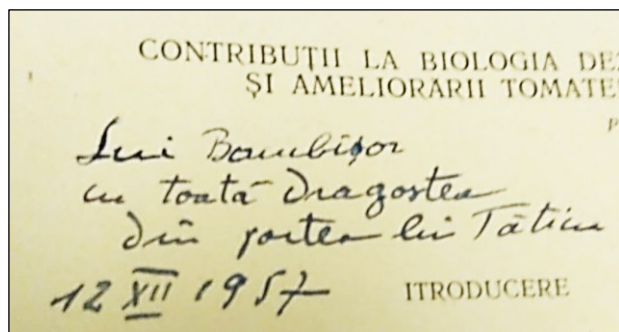 CONTRIBUȚII LA BIOLOGIA DEZ
ȘI AMELIORĂRII TOMATE
P
Lui Bambișor
cu toată Dragostea
din partea lui Tăticu
12 XII 1957
ITRODUCERE